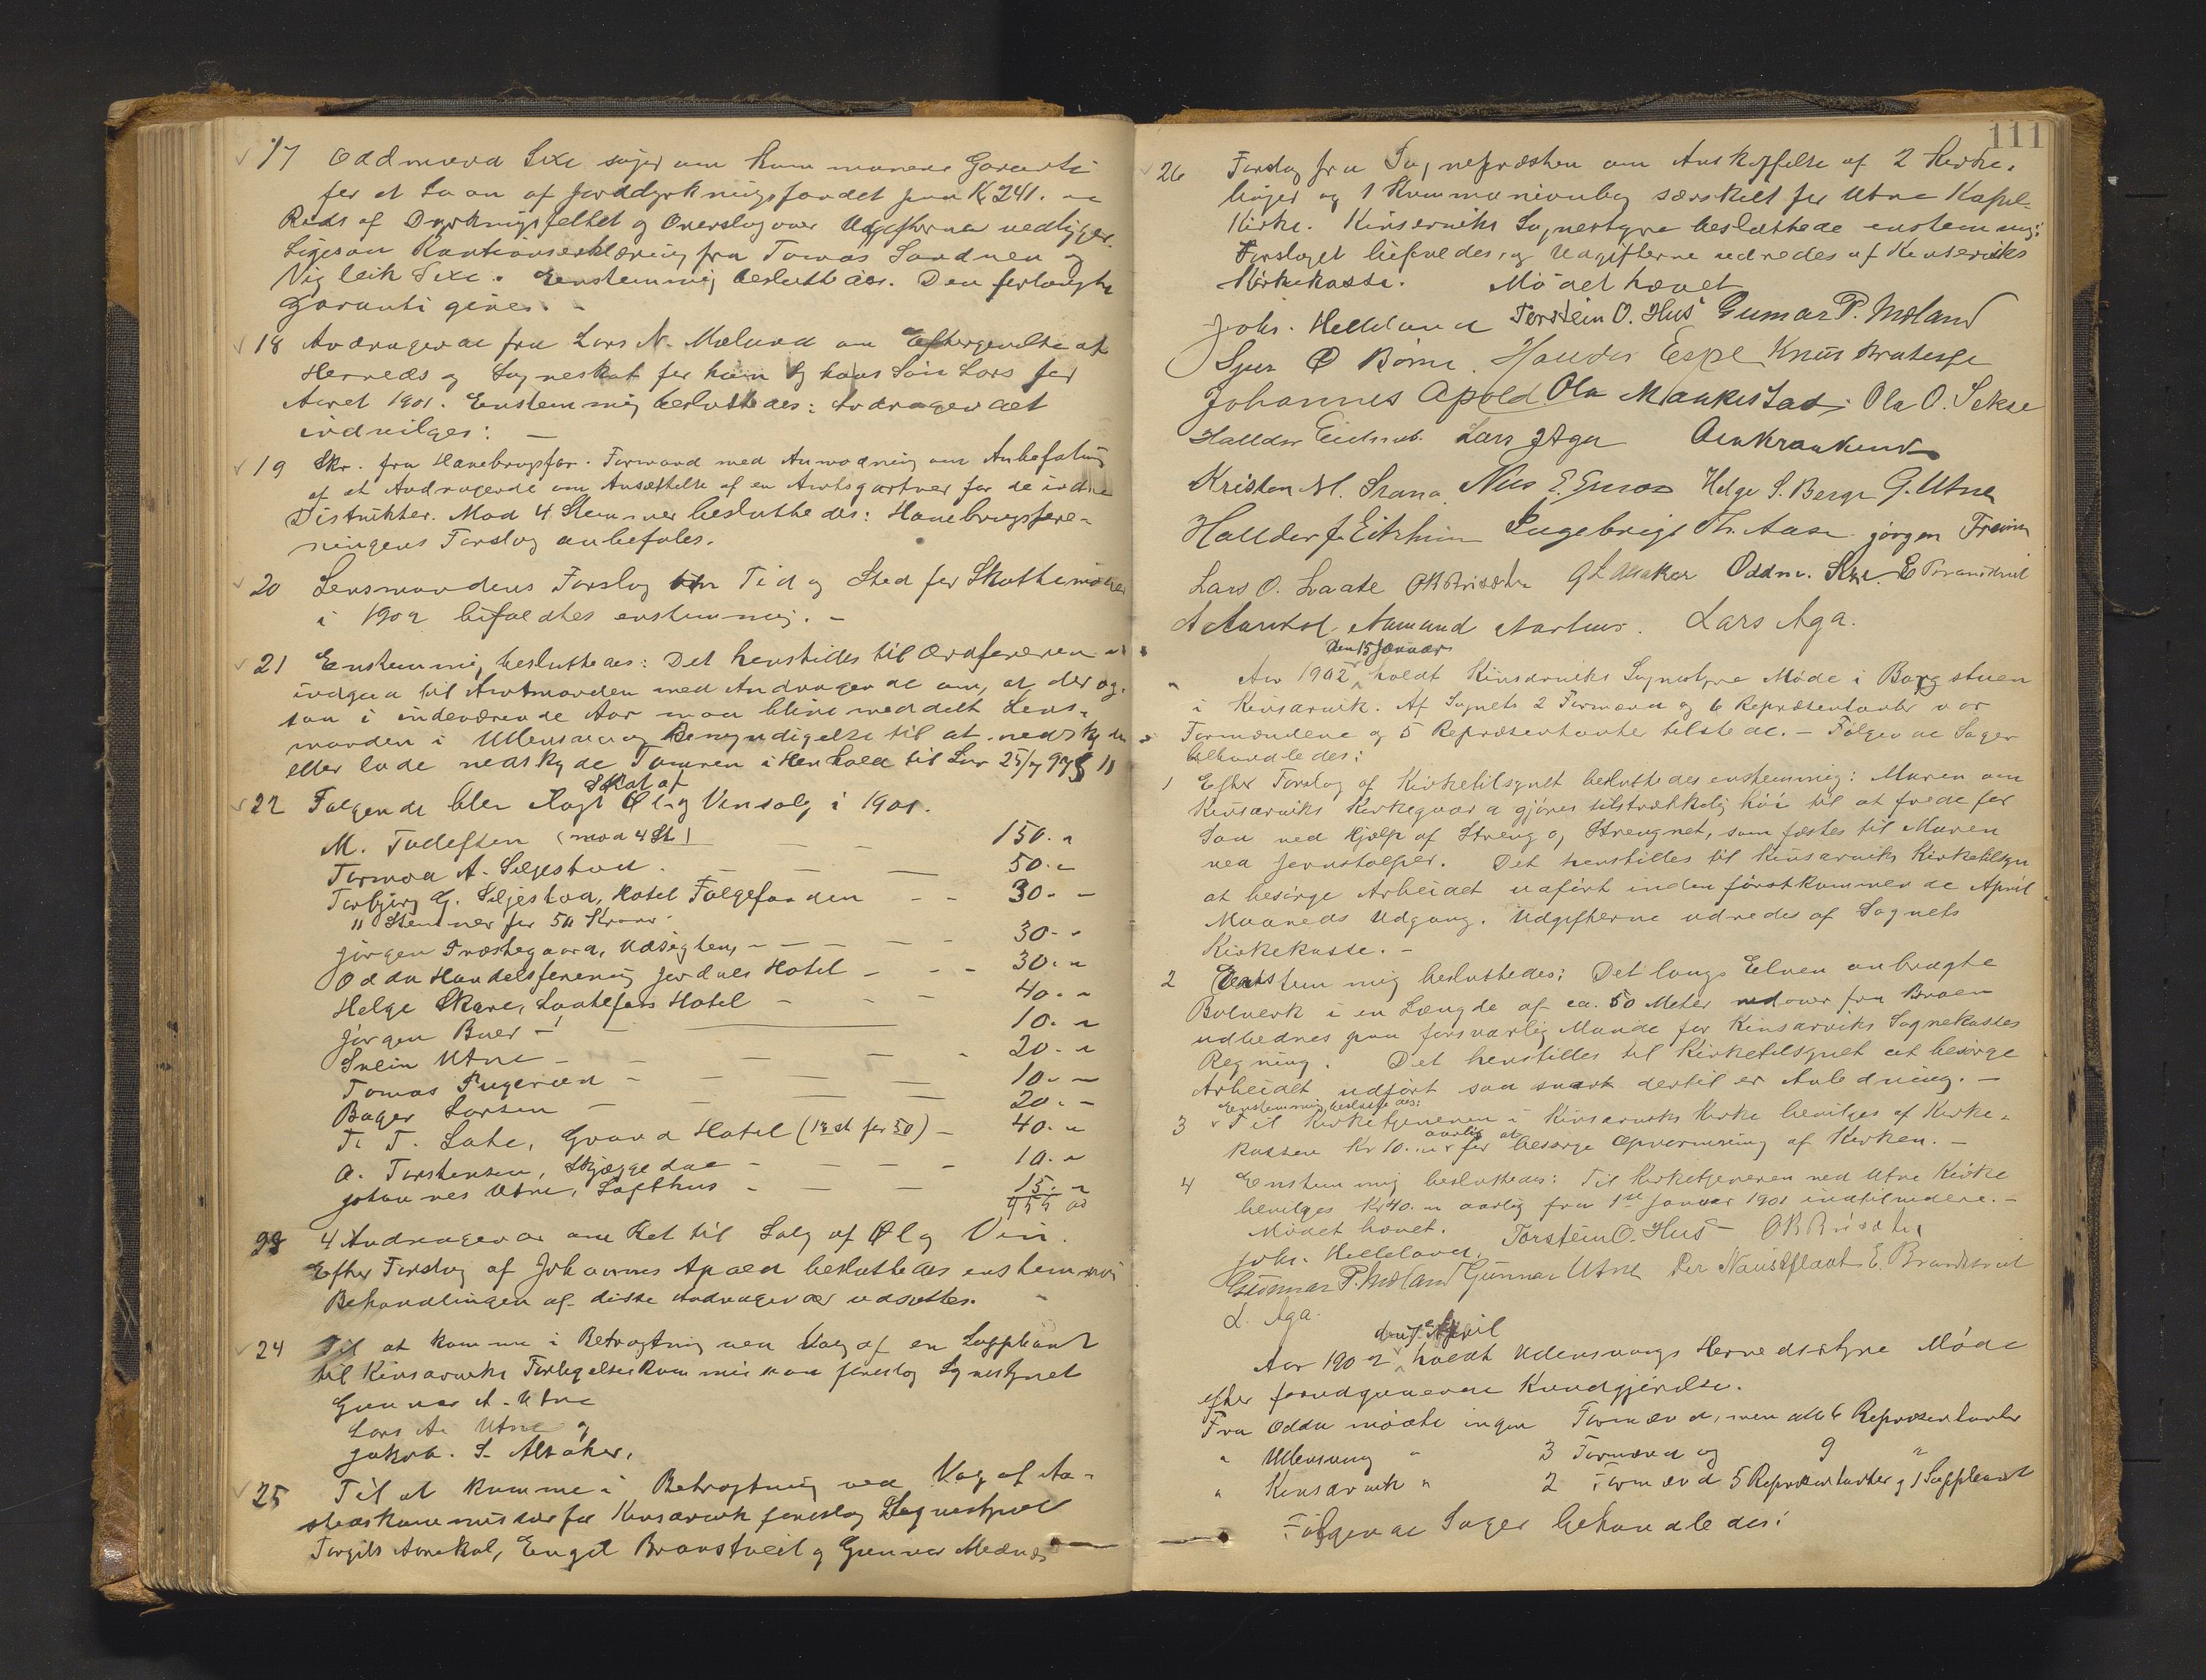 17 Oddmund Sexe søger om kommunens Garanti
for et Laan af Jorddyrkningsfondet paa Kr 241. "
Rids af Dyrkningsfeltet og Overslag over Udgifterne vedligger.
Ligesaa Kautionserklæring fra Tomas Sandven og
Vigleik Sexe. Eenstemmig besluttedes. Den forlangte
Garanti gives. -
18 Andragende fra Lars N. Mæland om Eftergivelse af
Herreds og Sogneskat for ham og hans Søn Lars for
Aaret 1901. Enstemmig besluttedes: Andragendet
indvilges: -
19 Skr. fra Havebrugsfor. Formand med Anmodning om Anbefaling
af et Andragende om Ansættelse af en Amtsgartner for de indre
Distrikter. Mod 4 Stemmer besluttedes: Havebrugsfore-
ningens Forslag anbefales.
20 Lensmandens Forslag om Tid og Sted for Skattemøder
i 1902 bifaldtes enstemmig. -
21 Enstemmig besluttedes: Det henstilles til Ordføreren at
indgaa til Amtmanden med Andragende om, at der og-
saa i indeværende Aar maa blive meddelt Lens-
manden i Ullensvang Bemyndigelse til at nedskyde
eller lade nedskyde Tamren i Henhold til Lov 25/7 97 § 11
Skat af
22 Følgende blev ilagt Øl og Vinsalg i 1901.
M. Tudeften (mod 4 St) - - 150. "
Tormod A. Seljestad. - - 50. "
Torbjørg G. Seljestad, Hotel Folgefonden - - 30. -
11 Stemmer for 50 Kroner
Jørgen Præstegaard, Udsigten, - - - 30. "
Odda Handelsforening Jordals Hotel - - - 30. "
Helge Skare, Laatefoss Hotel - - - 40. "
Jørgen Buer - - 10. "
Svein Utne - - - 20. "
Tomas Ingerød - - - 10. "
Bager Larsen - - - 20. -
T. T. Lote, Grand Hotel (12 st for 50) - 40. "
O. Torstensen, Skjæggedal - - - 10. "
Johannes Utne, Lofthus - - - 15. "
455 00
23 4 Andragender om Ret til Salg af Øl og Vin.
Efter Forslag af Johannes Apold besluttedes enstemmig
Behandlingen af disse Andragender udsættes. -
24 Til at komme i Betragtning ved Valg af en Suppleant
til Kinsarviks Forligelseskommission foreslog Sognestyret
Gunnar A. Utne
Lars A. Utne og
Jakob. S. Alsaker.
25 Til at komme i Betragtning ved Valg af Aa-
stedskommissær for Kinsarvik foreslog Sognestyret
Torgils Aarekol, Engel Branstveit og Gunnar Mednæs
111
26 Forslag fra Sognepræsten om Anskaffelse af 2 Kirke-
bøger og 1 Kommunionbog særskilt for Utne Kapel-
Kirke. Kinserviks Sognestyre besluttede enstemmig:
Forslaget bifaldes, og Udgifterne udredes af Kinserviks
Kirkekasse. Mødet hævet
Johs. Helleland Torstein O. Hus Gunnar P. Mæland
Sjur O Børve. Halldor Espe Knut Bratespe
Johannes Apold Ola Mankestad. Ola O. Sekse
Halldor Eidnes. Lars J Aga
Kristen M. Trana Nils E. Helge S. Berge G. Utne
Halldor J. Eitrheim Ingebrigt Th. Aase Jørgen Freim
Lars O. Laate O B Brisæter G L Alsaker Oddm. Sexe. E Branstveit
A Aarekol Aamund Aartun. Lars Aga.
den 15 Januar
Aar 1902 holdt Kinsarviks Sognestyre Møde i Borgstuen
i Kinsarvik. Af Sognets 2 Formænd og 6 Repræsentanter var
Formændene og 5 Repræsentanter tilstede. - Følgende Sager
behandledes:
1 Efter Forslag af Kirketilsynet besluttedes enstemmig: Muren om
Kinsarviks Kirkegaard gjøres tilstrækkelig høi til at frede for
Sau ved Hjælp af Streng og Strengnet, som fæstes til Muren
ved Jernstolper. Det henstilles til Kinsarviks Kirketilsyn
at besørge Arbeidet udført inden førstkommende April
Maaneds Udgang. Udgifterne udredes af Sognets
Kirkekasse. -
2 Enstemmig besluttedes: Det langs Elven anbragte
Bolverk i en Længde af ca. 50 Meter nedover fra Broen
udbedres paa forsvarlig Maade for Kinsarviks Sognekasses
Regning. Det henstilles til Kirketilsynet at besørge
Arbeidet udført saa snart dertil er Anledning. -
Enstemmig besluttedes:
3 Til Kirketjeneren i Kinsarviks Kirke bevilges af Kirke-
kassen Kr 10. " aarlig for at besørge Opvarmning af Kirken. -
4 Enstemmig besluttedes: Til Kirketjeneren ved Utne Kirke
bevilges Kr 40. " aarlig fra 1ste Januar 1901 indtil videre. -
Mødet hævet. Torstein O. Hus O B Brisæter
Johs. Helleland.
Gunnar P. Mæland Gunnar Utne Per Nausdflaat E. Brandstveit
L. Aga.
den 7 April
Aar 1902 holdt Udensvangs Herredsstyre Møde
efter forudgaaende Kundgjørelse.
Fra Odda mødte ingen Formænd, men alle 6 Repræsentanter
" Ullensvang " 3 Formænd og 9 "
" Kinsarvik " 2 Formænd 5 Repræsentanter og 1 Suppleant
Følgende Sager behandledes: